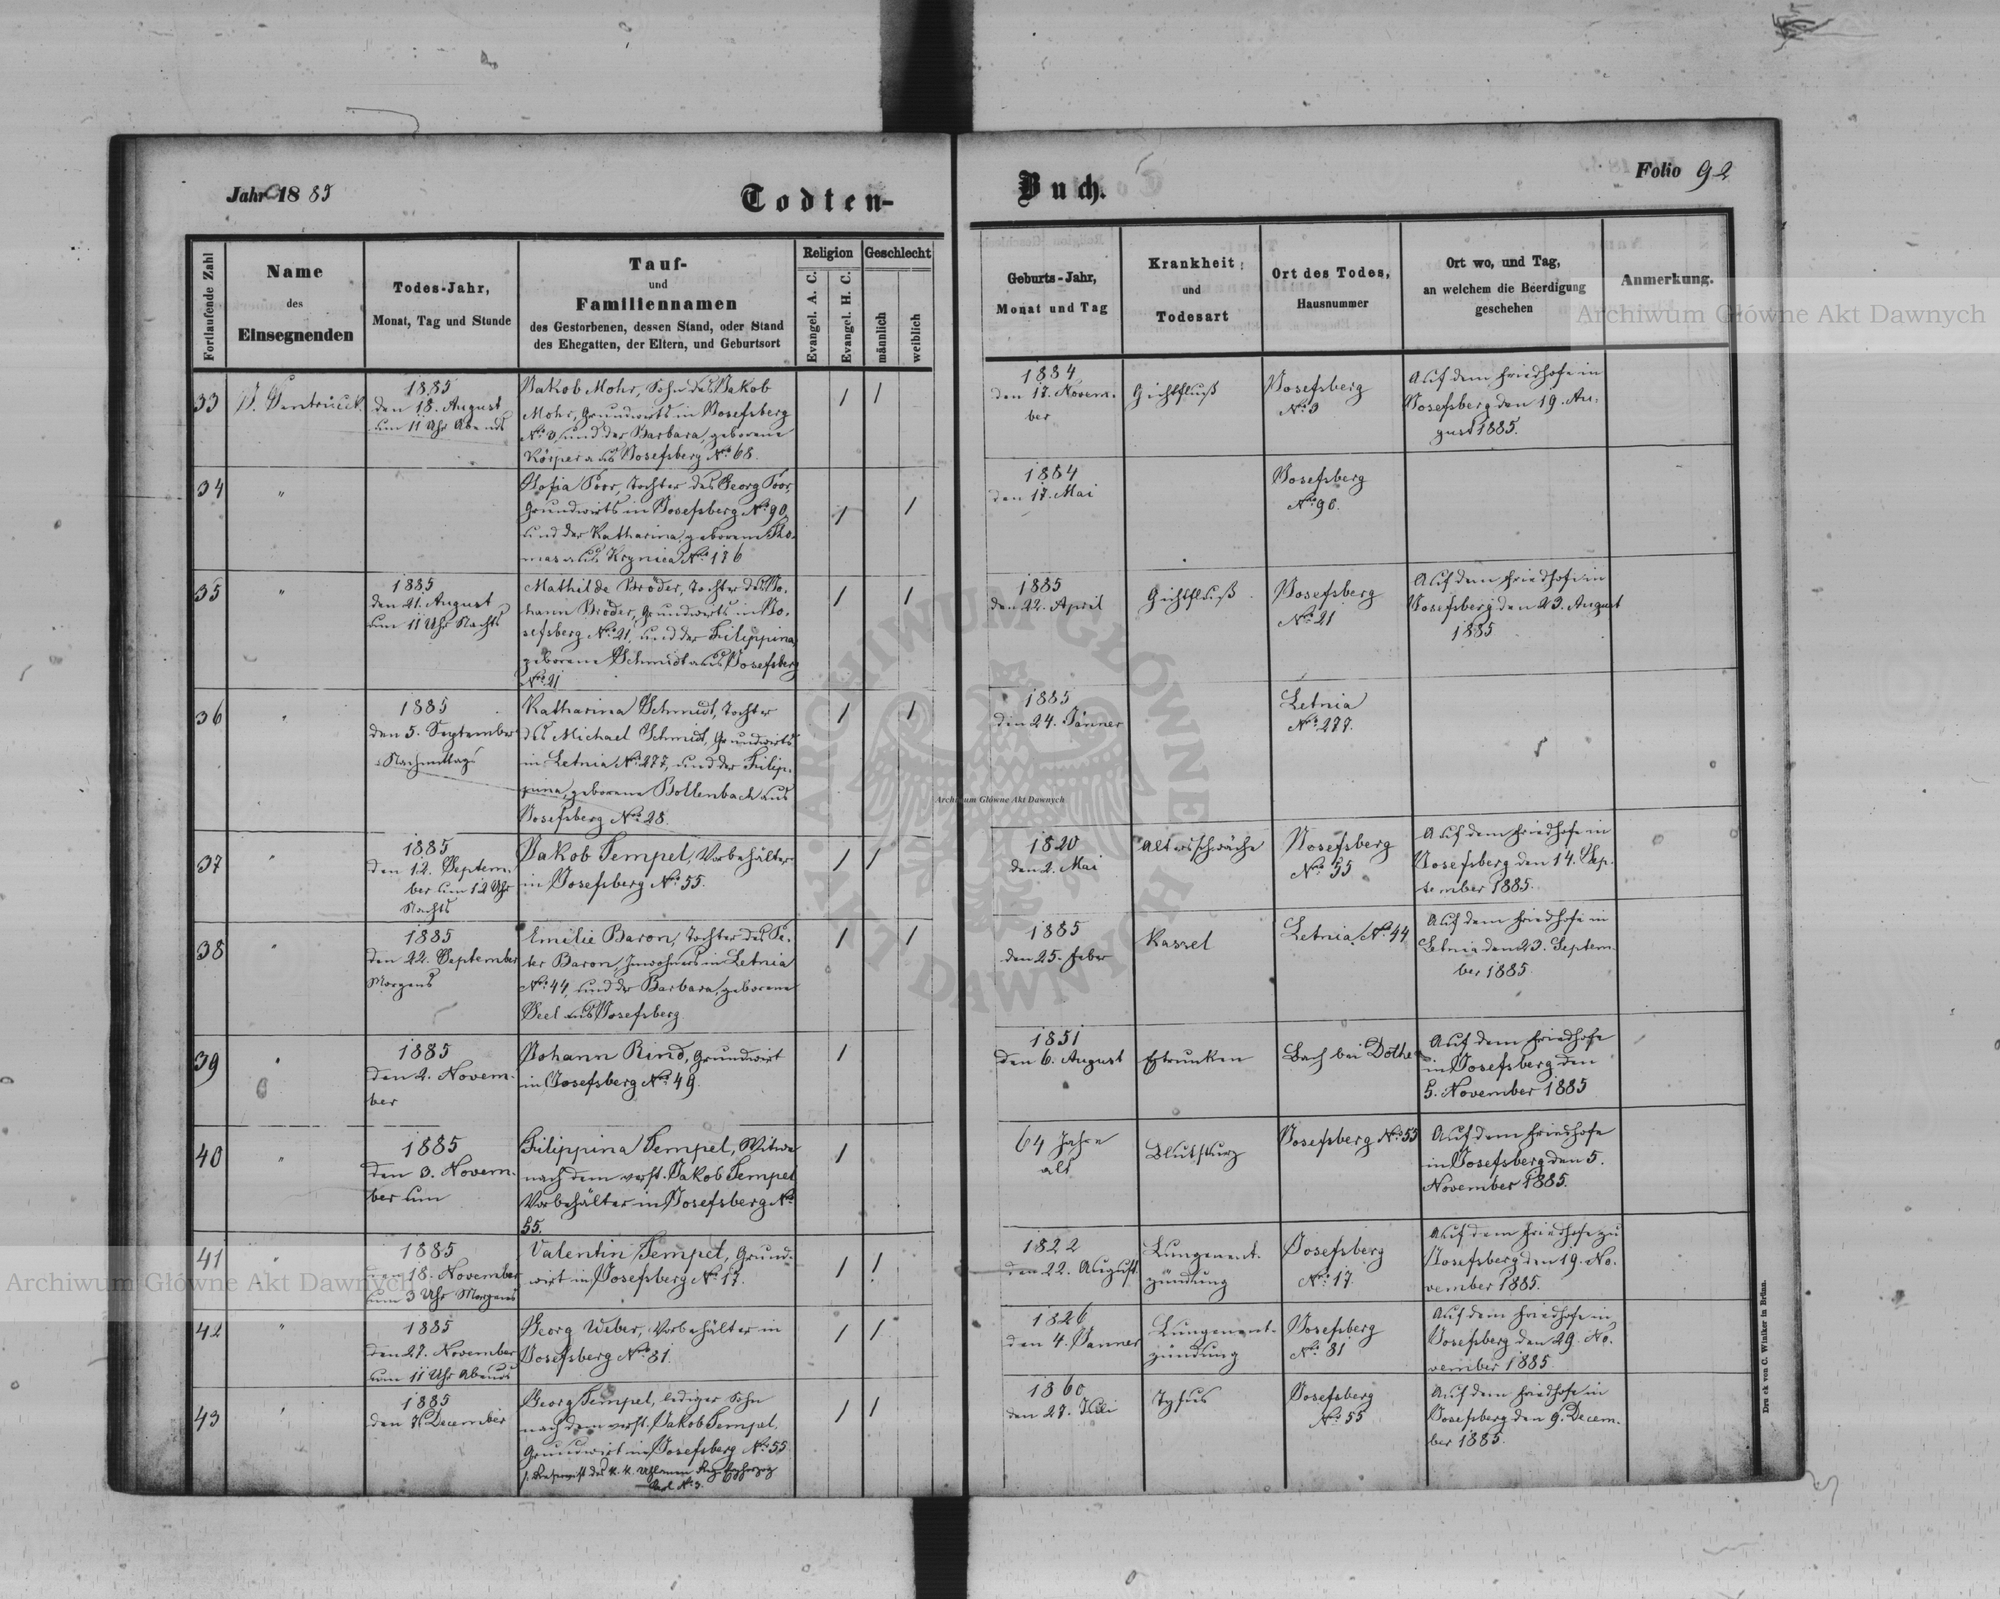 Jahr 1885
Todten-
Buch.
Folio 92
Fortlaufende Zahl
Name
des
Einsegnenden
Todes-Jahr,
Monat, Tag und Stunde
Tauf-
und
Familiennamen
des Gestorbenen, dessen Stand, oder Stand
des Ehegatten, der Eltern, und Geburtsort
Religion
Evangel. A. C.
Evangel. H. C.
Geschlecht
männlich
weiblich
Geburts-Jahr,
Monat und Tag
Krankheit
und
Todesart
Ort des Todes,
Hausnummer
Ort wo, und Tag,
an welchem die Beerdigung
geschehen
Anmerkung.
33
1885
den 18. August
um 11 Uhr Abends
Jakob Mohr, Sohn des Jakob
Mohr, Grundwirts in Josefsberg
No 3, und der Barbara, geborene
Körper aus Josefsberg No 68.
/
/
1884
den 17. Novem-
ber
Gichtfluß
Josefsberg
No 3
Auf dem Friedhofe in
Josefsberg den 19. Au-
gust 1885.
34
"
Sofia Poor, Tochter des Georg Poor,
Grundwirts in Josefsberg No 90,
und der Katharina, geborene Tho-
mas aus Krynica No 176
/
/
1884
den 17. Mai
Josefsberg
No 90.
35
"
1885
den 21. August
um 11 Uhr Nachts
Mathilde Bröder, Tochter des Jo-
hann Bröder, Grundwirts in Jo-
sefsberg No 21, und der Filippina,
geborene Schmidt aus Josefsberg
No 21
/
/
1885
den 22. April
Gichtfluß
Josefsberg
No 21
Auf dem Friedhofe in
Josefsberg den 23. August
1885
36
"
1885
den 5. September
Nachmittags
Katharina Schmidt, Tochter
des Michael Schmidt, Grundwirts
in Letnia No 277, und der Filip-
pina, geborene Bollenbach aus
Josefsberg No 28.
/
/
1885
den 24. Jänner
Letnia
No 277.
37
"
1885
den 12. Septem-
ber um 12 Uhr
Nachts
Jakob Tempel, Vorbehälter
in Josefsberg No 55.
/
/
1820
den 2. Mai
Altersschwäche
Josefsberg
No 55
Auf dem Friedhofe in
Josefsberg den 14. Sep-
tember 1885.
38
"
1885
den 22. September
Morgens
Emilie Baron, Tochter des Pe-
ter Baron, Inwohners in Letnia
No 44, und der Barbara, geborene
Seel aus Josefsberg
/
/
1885
den 25. Feber
Letnia No 44
Auf dem Friedhofe in
Letnia den 23. Septem-
ber 1885.
39
"
1885
den 2. Novem-
ber
Johann Rind, Grundwirt
in Josefsberg No 49.
/
1851
den 6. August
Ertrunken
Bach bei
Auf dem Friedhofe
in Josefsberg den
5. November 1885
40
"
1885
den 3. Novem-
ber um
Filippina Tempel, Witwe
nach dem verst. Jakob Tempel
Vorbehälter in Josefsberg No
55.
/
64 Jahre
alt
Blutsturz
Josefsberg No 55
Auf dem Friedhofe
in Josefsberg den 5.
November 1885.
41
"
1885
18. November
um 3 Uhr Morgens
Valentin Tempel, Grund-
wirt in Josefsberg No 17.
/
/
1822
den 22. August
Lungenent-
zündung
Josefsberg
No 17.
Auf dem Friedhofe zu
Josefsberg den 19. No-
vember 1885.
42
"
1885
den 27. November
um 11 Uhr Abends
Georg Weber, Vorbehälter in
Josefsberg No 81.
/
/
1826
den 4. Jänner
Lungenent-
zündung
Josefsberg
No 81
Auf dem Friedhofe in
Josefsberg den 29. No-
vember 1885.
43
"
1885
den 7. December
Georg Tempel, lediger Sohn
nach dem verst. Jakob Tempel,
Grundwirt in Josefsberg No 55
/
/
1860
den 27. Mai
Tyfus
Josefsberg
No 55
Auf dem Friedhofe in
Josefsberg den 9. Decem-
ber 1885.
Druck von C. Winiker in Brünn.
Archiwum Główne Akt Dawnych
Archiwum Główne Akt Dawnych
Archiwum Główne Akt Dawnych
ARCHIWUM GŁÓWNE
AKT DAWNYCH